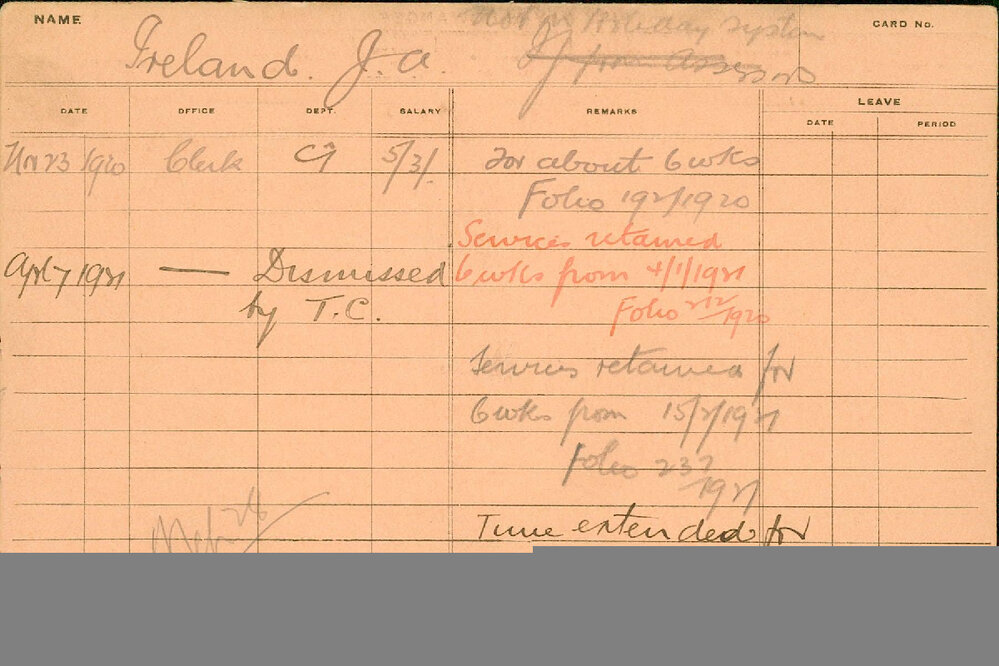 NAME
CARD No.
Ireland. J. A.
Holiday system
from Assessors
DATE OFFICE DEPT. SALARY REMARKS LEAVE
DATE PERIOD
Nov 23 1920 Clerk 5/3/. For about 6 wks
Folio 192/1920
Services retained
Apl 7 1921 — Dismissed 6 wks from 4/1/1921
by T.C. Folio 212/1920
Services retained for
6 wks from 15/2/1921
Folio 237/1921
Time extended for